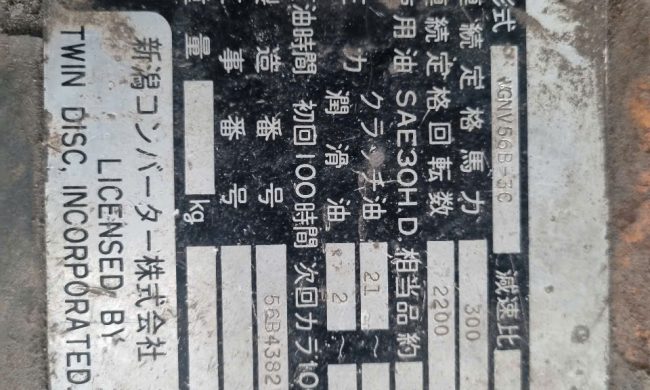 形式 MGNV56B-3C 減速比
連続定格馬力 300
連続定格回転数 2200
使用油 SAE30H.D.相当品約
クラッチ油 21 ~
力 潤滑油 2 ~
油時間 初回100時間 次回カラ10
造番号 56B4382
事番号
重量 kg
新潟コンバーター株式会社
LICENSED BY
TWIN DISC, INCORPORATED.